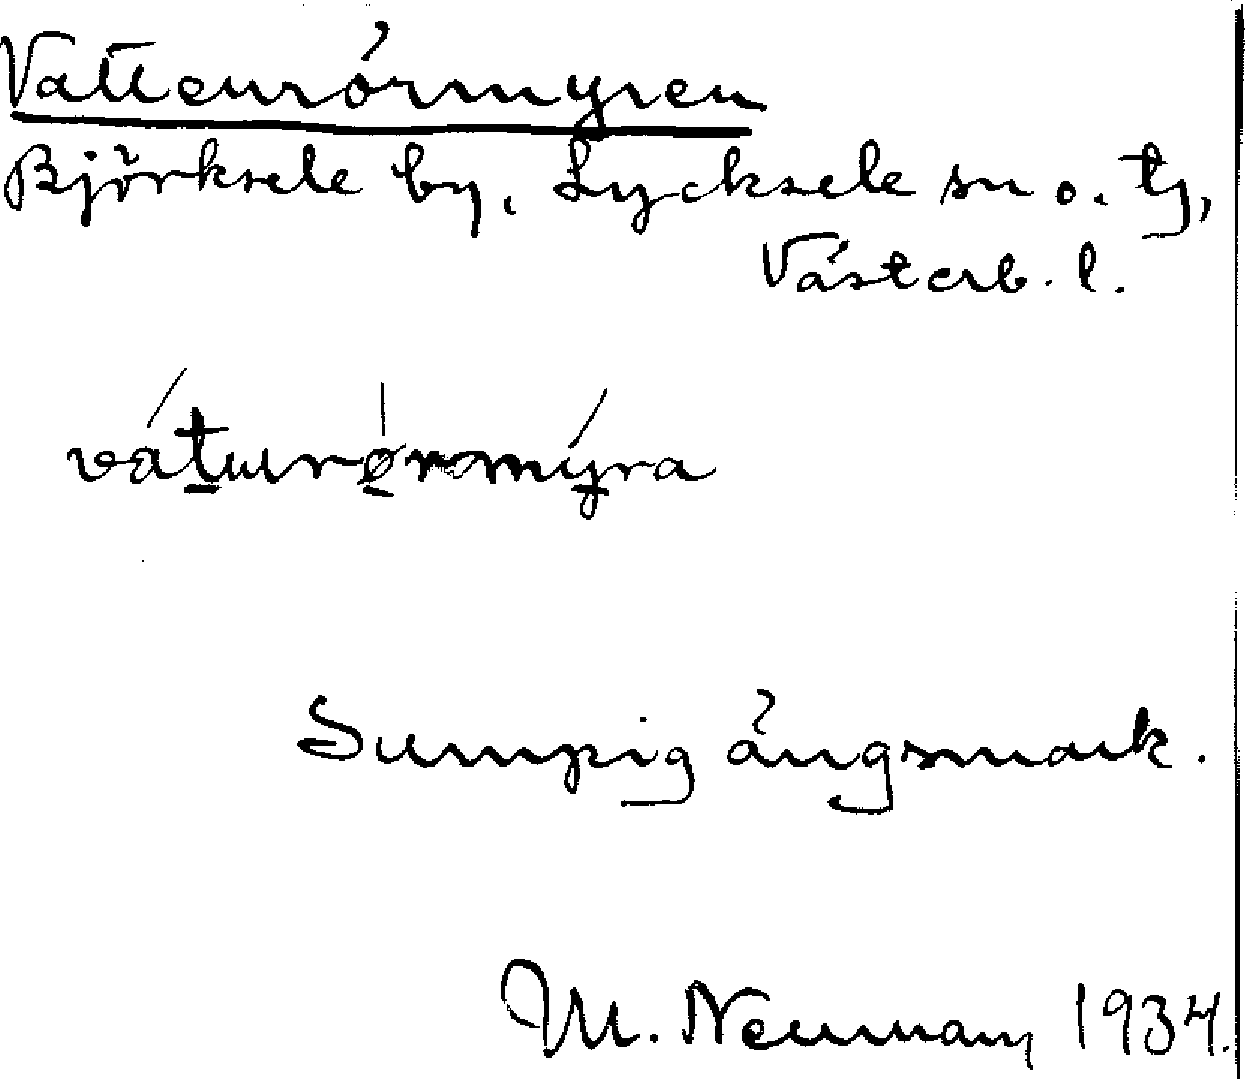 Vattenrörmyren
Björksele by, Lycksele sn o. tg,
Västerb. l.
Sumpig ängsmark.
M. Neuman, 1934.